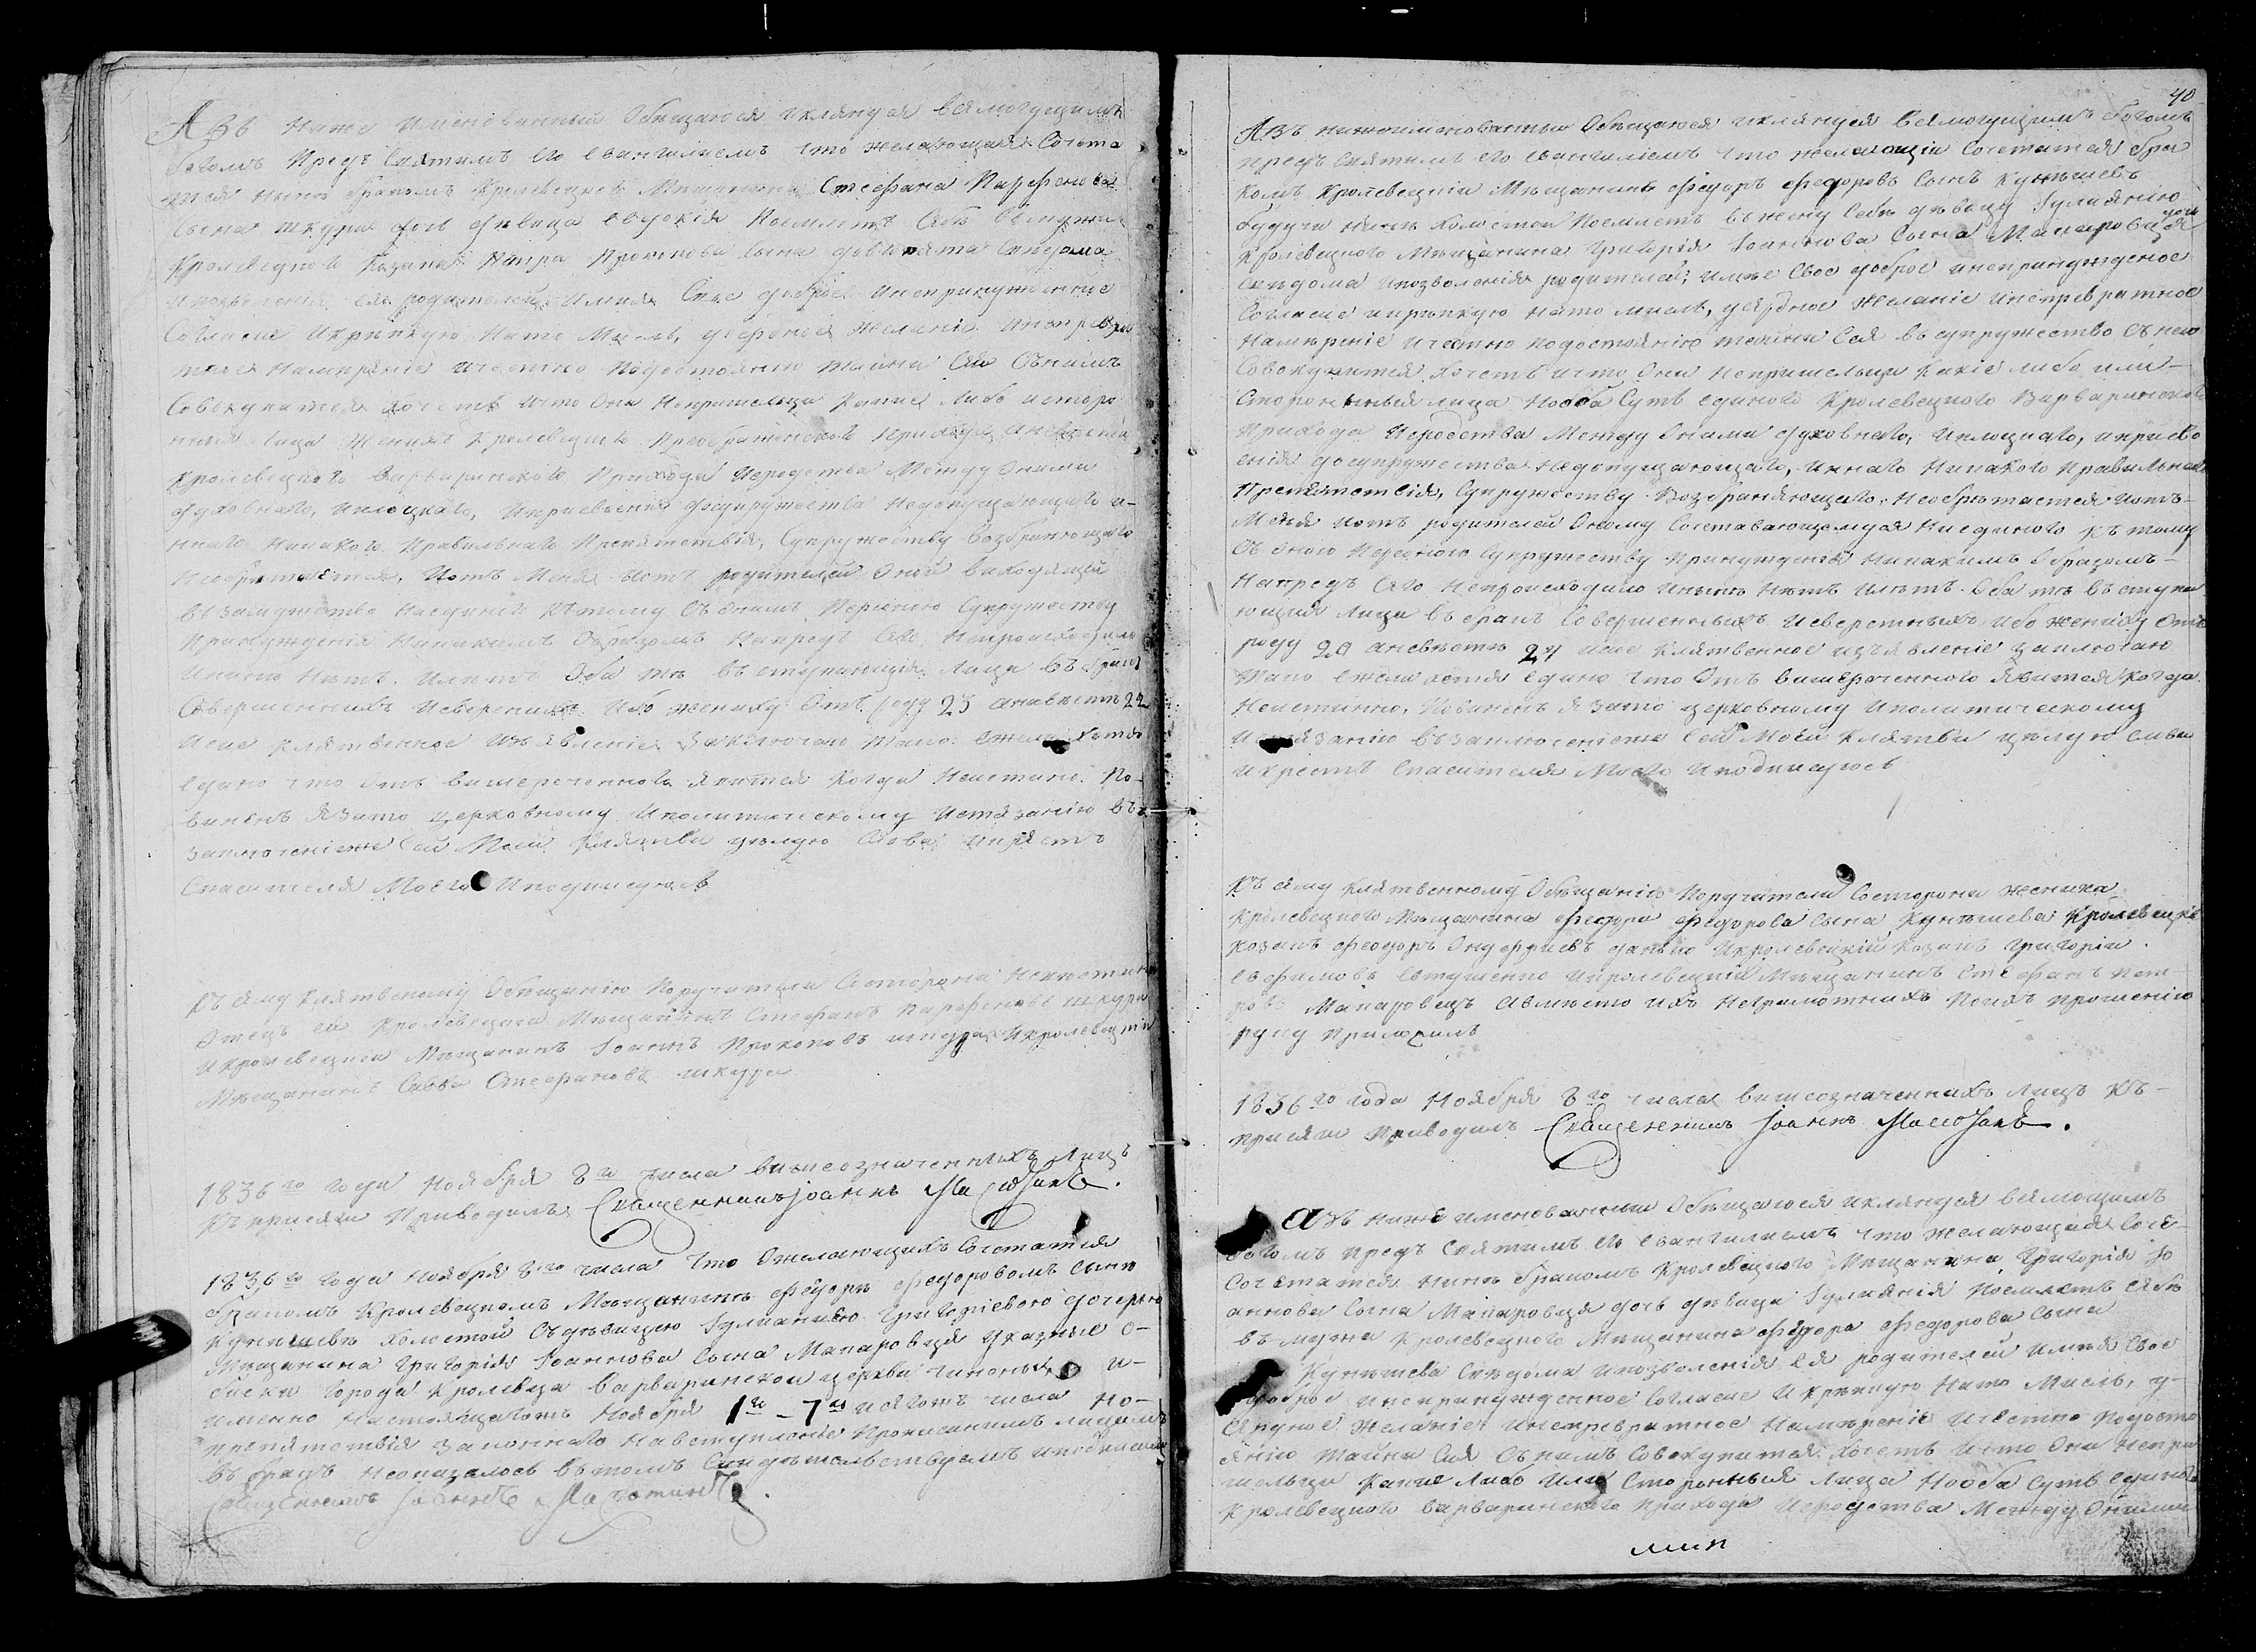 Азъ ниже именованный Обещаюся и клянуся всемогущимъ
Богомъ предъ Святимъ его Евангелиемъ что желающая Сочета
тся нынѣ бракомъ Кролевецкого Мещанина Стефана Парфенова
Сына шкури дочь девица Евдокія поемлетъ себѣ въ мужа
Кролевецкого Казака Прокопова сына свѣдома
и позволенія ея родителей имѣя Свое доброе и непринужденное
Согласие и крѣпкую на то мисль, усердное желаніе и непревра
тное намѣреніе и честно по достоянію тайни Сея Снимъ
Совокупится хочетъ и что Они непришельци какие либо и сторо
нныя лица жених Кролевецкого Преображенского прихода а невѣста
Кролевецкого Варваринского прихода и сродства между Оними
духовнаго, и плоцкаго, и присвоения до супружества недопущающаго и-
ннаго никакого правильнаго препятствія, Супружеству возбраняющаго
необрѣтается, и отъ меня и отъ родителей Оной виходящей
въ замужство ниединого къ тому съ онимъ персоною Супружеству
принужденія никакимъ Образомъ напредъ сего непроисходило
и нынѣ нѣтъ. и лѣтъ Оба тѣ въступающія лица въ бракъ
Совершеннихъ и веренихъ ибо жениху Отъ роду 23 а невѣстѣ 22
и сие клятвенное изъявление заключаю тако: ежели хотя
едино что Отъ вишереченнова явится когда неистинно. По-
виненъ я за то церковному и политическому истязанію въ
заключеніе же Сей Моей Клятви цѣлую Слова и крестъ
Спасителя Моего и подписуюсь

Къ сему клятвеному Обѣщанію поручители Состороны Невѣсти
Отецъ ея Кролевецкій Мѣщанинъ Стефанъ Парфеновъ шкура
и кролевецкий Мѣщанинъ Іоаннъ Прокоповъ шкура и кролевецкий
Мѣщанинъ Савва Стефановъ шкура

1836го года Ноября 8го числа вишеозначеннихъ Лицъ
къ присяги Приводилъ Священникъ Іоаннъ

1836го года Ноября 8го числа что Ожелающихъ Сочетатися
бракомъ Кролевецкомъ Мѣщанинѣ Федорѣ Федоровомъ Синѣ
Кунишевѣ холостой Съ дѣвицею Іулианиею Григориевою дочерью
Мѣщанина Григорія Іоаннова Сына Макаровця указные о-
биски города Кролевца Варваринской церкви чинены и-
именно настоящагожъ Ноября 1го - 7го и сегожъ числа но-
препятствія законнаго навступление прописаннимъ лицамъ
въ бракъ неоказалось вътомъ Свидѣтельствуемъ и подписомъ
Священникъ Іоаннъ

40
Азъ нижеименованный Обѣщаюся и клянуся всемогущимъ Богомъ
предъ Святимъ его Евангеліемъ что желающій Сочетатся бра
комъ Кролевецкій Мѣщанинъ Федоръ Федоровъ Синъ Кунишевъ
будучи нынѣ холостой поемлетъ въ жену себѣ дѣвицу Іулианію
Кролевецкого Мѣщанина Григорія Іоаннова Сына Макаровця дочь
свѣдома и позволенія родителей; имѣе Свое доброе и непринужденое
Согласие и крѣпкую на то мисль, усердное желаніе и непревратное
намѣреніе и честно по достоянію тайни Сея въ супружество Съ нею
Совокупится хочетъ и что Они непришельци какіе либо или-
Сторонънныя лица но оба Суть единого Кролевецкого Варваринского
прихода и сродства между Оними духовнаго, и плоцкаго, и присво
енія до супружества недопущающаго, и ннаго никакого правильнаго
препятствія, Супружеству возбраняющаго, необрѣтается и отъ-
меня и отъ родителей Оному Сочетавающемуся ниединого къ тому
Съ Оною персоною Супружеству принужденія никакимъ Образомъ-
напредъ сего непроисходило и нынѣ нѣтъ и лѣтъ. Оба тѣ въступа
ющія лица въ бракъ Совершеннихъ и веретныхъ ибо жениху Отъ
роду 20 а невѣстѣ 24 и сие клятвенное изъявление заключаю
тако ежели хотя едино что Отъ вишереченного явится когда
неистинно, повиненъ я зато церковному и политическому
истязанію въ заключеніе же Сей Моей клятви цѣлую слова
и крестъ Спасителя Моего и подписуюсь

Къ сему клятвенному Обѣщанію поручители Состороны жениха
Кролевецкого Мѣщанина Федора Федорова Сына Кунишева Кролевецкій
козакъ Феодоръ и кролевецкій козакъ Григорій
Ефимовъ Евтушенко и кролевецкій Мѣщанинъ Стефанъ Пет-
ровъ Макаровецъ а вмѣсто ихъ неграмотнихъ поихъ прошенію
руку приложилъ

1836го года Ноября 8го числа вишеозначеннихъ лицъ къ-
присяги приводилъ Священникъ Іоаннъ

Азъ ниже именованный Обѣщаюся и клянуся всемощимъ
Богомъ предъ Святимъ его Евангелиемъ что желающая Соче-
Сочетатся нинѣ бракомъ Кролевецкого Мѣщанина Григорія Іо
аннова Сына Макаровця дочь дѣвица Іулиянія поемлетъ себѣ
въ мужа Кролевецкого Мѣщанина Федора Федорова Сына
Кунишева свѣдома и позволенія ея родителей имѣя Свое
доброе и непринужденное Согласие и крѣпкую на то мисль, у-
сердное желаніе и непревратное намѣреніе и честно по досто
янію тайни Сия Съ нимъ Совокупится хочетъ и что Они непри
шельци какие либо или Сторонныя лица но оба суть единого
Кролевецкого Варваринского прихода и сродства между Оними